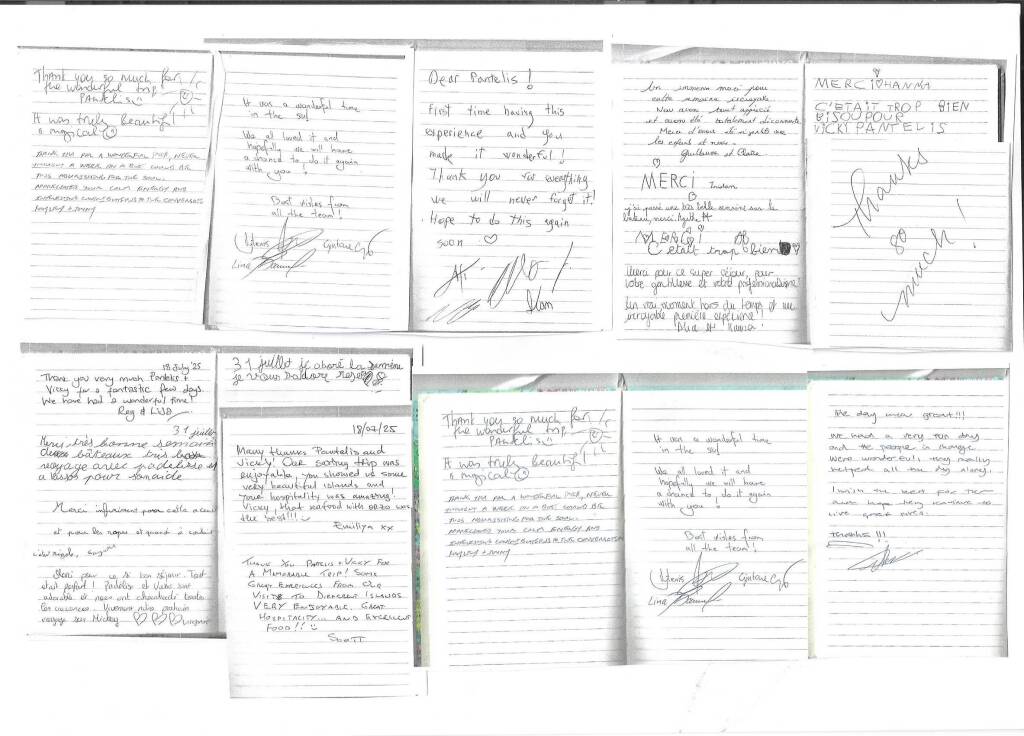 Thank you so much for
the wonderful trip
Pantelis
It was truly beautiful
& magical
THANK YOU FOR A WONDERFUL TRIP, NEVER
THOUGHT A WEEK ON A BOAT COULD BE
THIS NOURISHING FOR THE SOUL.
APPRECIATED YOUR CALM ENERGY AND
It was a wonderful time
in the sea
We all loved it and
hopefully we will have
a chance to do it again
with you!
Best wishes from
all the team!
Gintarė
Lina
Dear Pantelis!
First time having this
experience and you
made it wonderful!
Thank you for everything
we will never forget it!
Hope to do this again
soon
Un immense merci pour
cette semaine incroyable
Nous avons tout apprécié
et avons été totalement déconnectés
Merci d'avoir été si gentils avec
les enfants et nous.
Guillaume et Claire
MERCI
j'ai passé une très belle semaine sur le
bateau, merci. Agathe
MERCI!
C'était trop bien
Merci pour ce super séjour, pour
votre gentillesse et votre professionnalisme!
Un vrai moment hors du temps et une
incroyable première expérience!!
MERCI HANNA
C'ÉTAIT TROP BIEN
BISOU POUR
VICKI PANTELIS
Thanks
so
much!
18 July '25
Thank you very much Pantelis +
Vicky for a fantastic few days.
We have had a wonderful time!
Reg & Lisa
31 juillet
Merci très bonne semaine
voyage avec
Merci infiniment pour cette
Merci pour ce si bon séjour. Tout
était parfait! Pantelis et Vicky sont
adorables et nous ont chouchouté toutes
les vacances. Vivement notre prochain
voyage sur Mickey
31 juillet je adoré la semaine
je vous adore
18/07/25
Many thanks Pantelis and
Vicky! Our sailing trip was
enjoyable, you showed us some
very beautiful islands and
your hospitality was amazing!
Vicky, that seafood with orzo was
the best!!!
Emiliya xx
THANK YOU PANTELIS + VICKY FOR
A MEMORABLE TRIP! SOME
GREAT EXPERIENCES FROM OUR
VISITS TO DIFFERENT ISLANDS
VERY ENJOYABLE. GREAT
HOSPITALITY... AND EXCELLENT
FOOD!!
SCOTT
Thank you so much for
the wonderful trip
Pantelis
It was truly beautiful
& magical
THANK YOU FOR A WONDERFUL TRIP, NEVER
THOUGHT A WEEK ON A BOAT COULD BE
THIS NOURISHING FOR THE SOUL.
APPRECIATED YOUR CALM ENERGY AND
It was a wonderful time
in the sea
We all loved it and
hopefully we will have
a chance to do it again
with you!
Best wishes from
all the team!
Gintarė
Lina
The day was great!!!
We had a very fun day
and the people in charge
were wonderful, they really
helped all the day along.
I wish the best for them
and hope they continue to
live great lives.
THANKS!!!